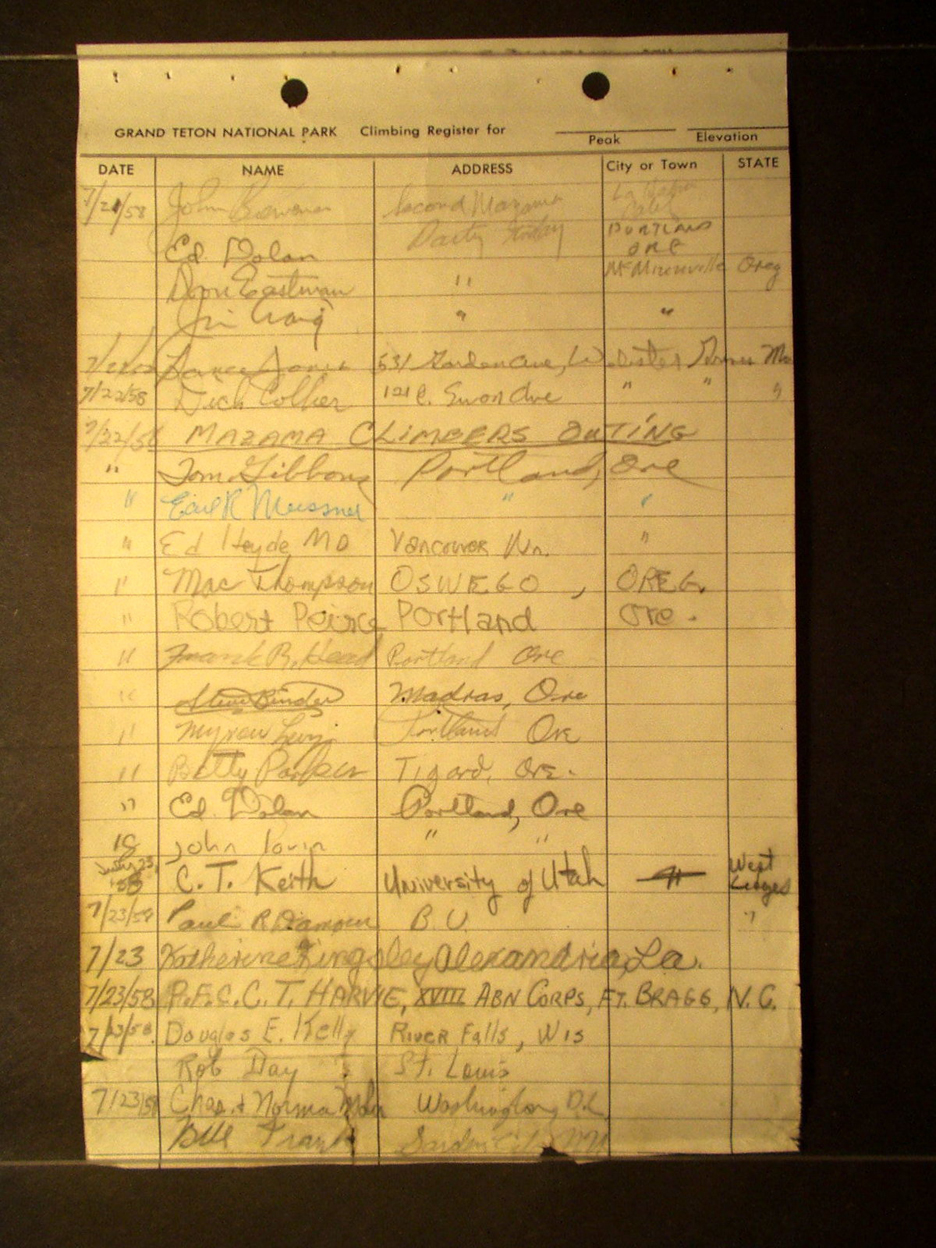 GRAND TETON NATIONAL PARK Climbing Register for Peak Elevation
DATE NAME ADDRESS City or Town STATE
7/21/58 John Second Mazama La
Party today
Ed Dolan PORTLAND ORE
Don Eastman " McMinnville Oreg
Jim Craig " "
Lance Jones 531 Garden Ave,
7/22/58 Dick Collier 121 E. Swon Ave " " "
7/22/58 MAZAMA CLIMBERS OUTING
" Tom Gibbons Portland, Ore
" Earl R Meissner " "
" Ed Heyde MD Vancouver Wn. "
" Mac Thompson OSWEGO , OREG.
" Robert Peirce Portland Ore.
" Frank B. Head Portland Ore
" Binder Madras, Ore
" Myron Levy Portland Ore
" Betty Parker Tigard, Ore.
" Ed. Dolan Portland, Ore
John " "
July 23, 58 C. T. Keith University of Utah West Ledges
7/23/58 Paul R B.U. "
7/23 Katherine Kingsley Alexandria, La.
7/23/58 P.F.C. C. T. HARVIE, XVIII ABN CORPS, FT. BRAGG, N.C.
7/23/58. Douglas E. Kelly RIVER FALLS, WIS
Rob Day St. Louis
7/23/58 Chas. & Norma Washington, D.C.
Bill Frank